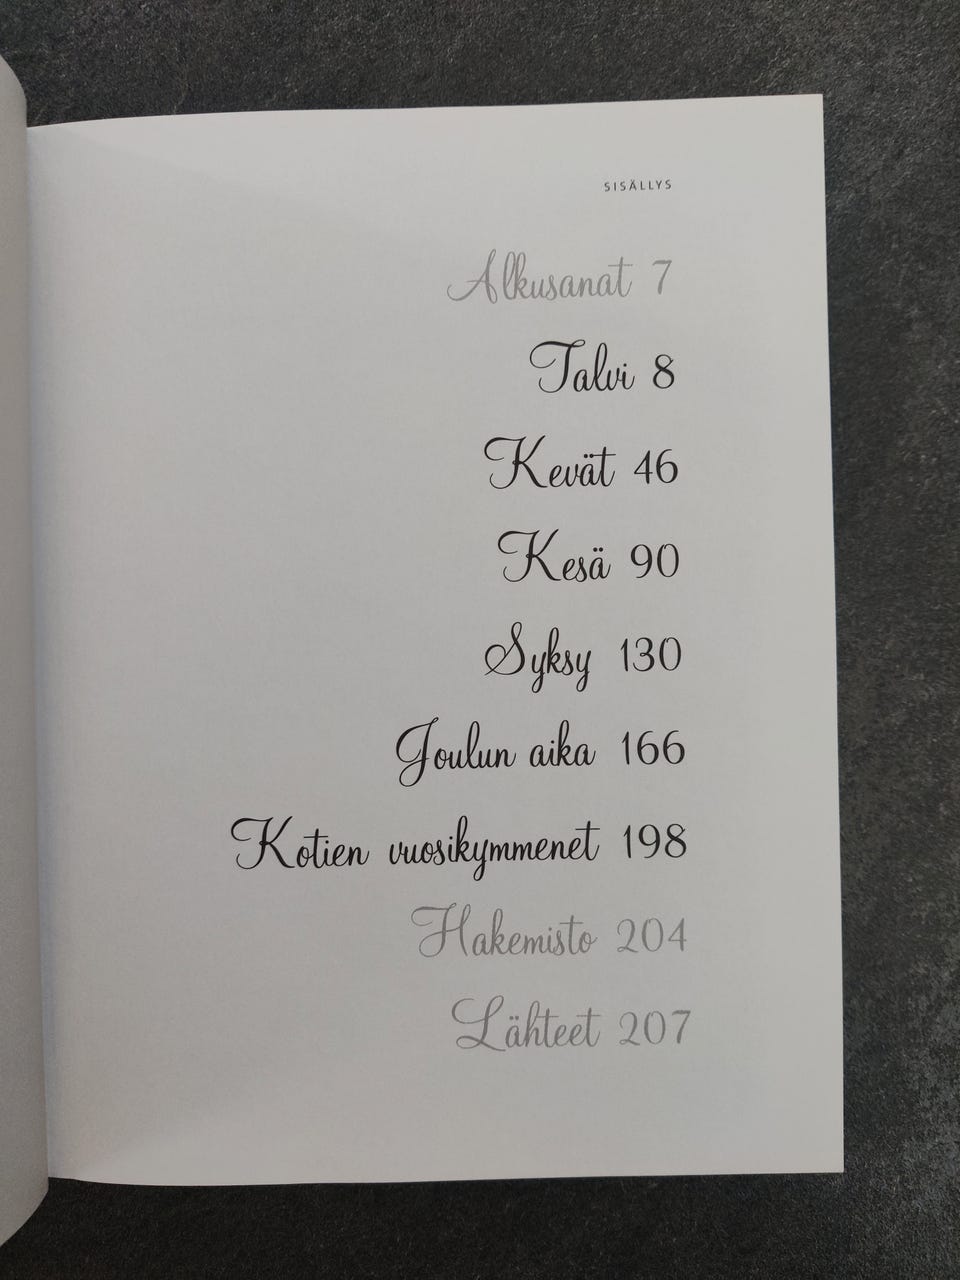 SISÄLLYS
Alkusanat 7
Talvi 8
Kevät 46
Kesä 90
Syksy 130
Joulun aika 166
Kotien vuosikymmenet 198
Hakemisto 204
Lähteet 207